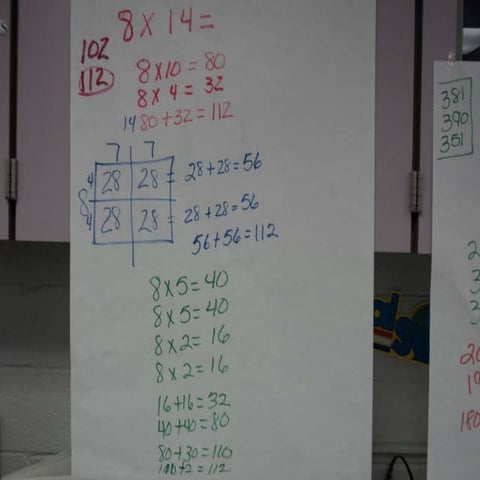 8 x 14 =
102
112
8 x 10 = 80
8 x 4 = 32
80 + 32 = 112
14
7 7
4 28 28 = 28 + 28 = 56
8
4 28 28 = 28 + 28 = 56
56 + 56 = 112
8 x 5 = 40
8 x 5 = 40
8 x 2 = 16
8 x 2 = 16
16 + 16 = 32
40 + 40 = 80
80 + 30 = 110
110 + 2 = 112
381
390
351
180